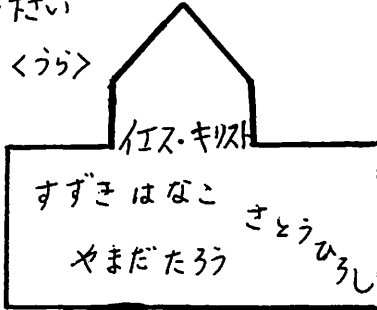 下さい
<うら>
イエス・キリスト
すずき はなこ
さとうひろし
やまだたろう